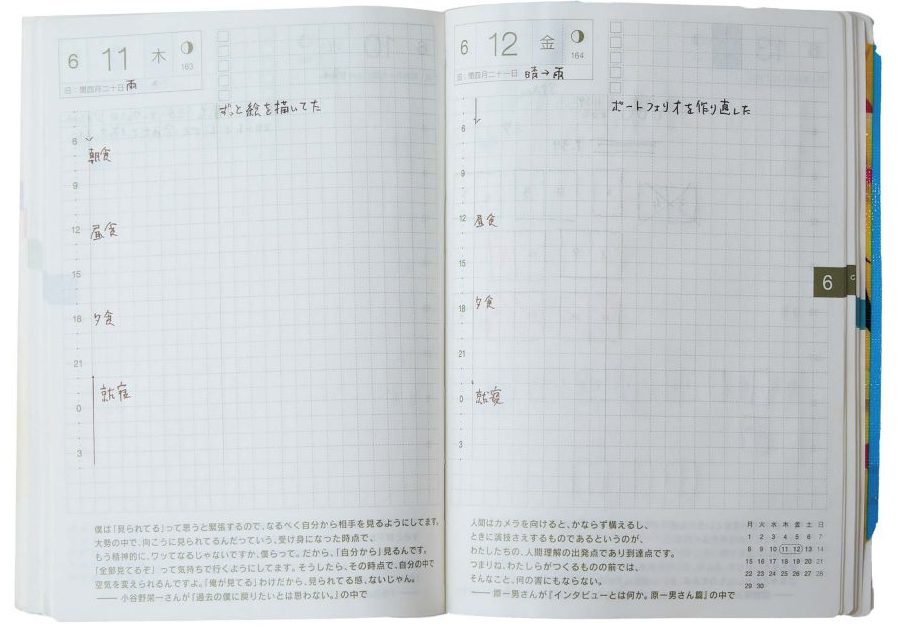 6 11 木
163
旧：閏四月二十日 雨
ずっと絵を描いてた
6
朝食
9
12 昼食
15
18 夕食
21
就寝
0
3
僕は「見られてる」って思うと緊張するので、なるべく自分から相手を見るようにしてます。
大勢の中で、向こうに見られてるんだっていう、受け身になった時点で、
もう精神的に、ワッてなるじゃないですか、僕らって。だから、「自分から」見るんです。
「全部見てるぞ」って気持ちで行くようにしてます。そうしたら、その時点で、自分の中で
空気を変えられるんですよ。「俺が見てる」わけだから、見られてる感、ないじゃん。
——小谷野栄一さんが『過去の僕に戻りたいとは思わない。』の中で
6 12 金
164
旧：閏四月二十一日 晴→雨
ポートフォリオを作り直した
6
9
12 昼食
15
夕食
18
21
0 就寝
3
人間はカメラを向けると、かならず構えるし、
ときに演技さえするものであるというのが、
わたしたちの、人間理解の出発点であり到達点です。
つまりね、わたしらがつくるものの前では、
そんなこと、何の害にもならない。
——原一男さんが『インタビューとは何か。原一男さん篇』の中で
月 火 水 木 金 土 日
1 2 3 4 5 6 7
8 9 10 11 12 13 14
15 16 17 18 19 20 21
22 23 24 25 26 27 28
29 30
6
C